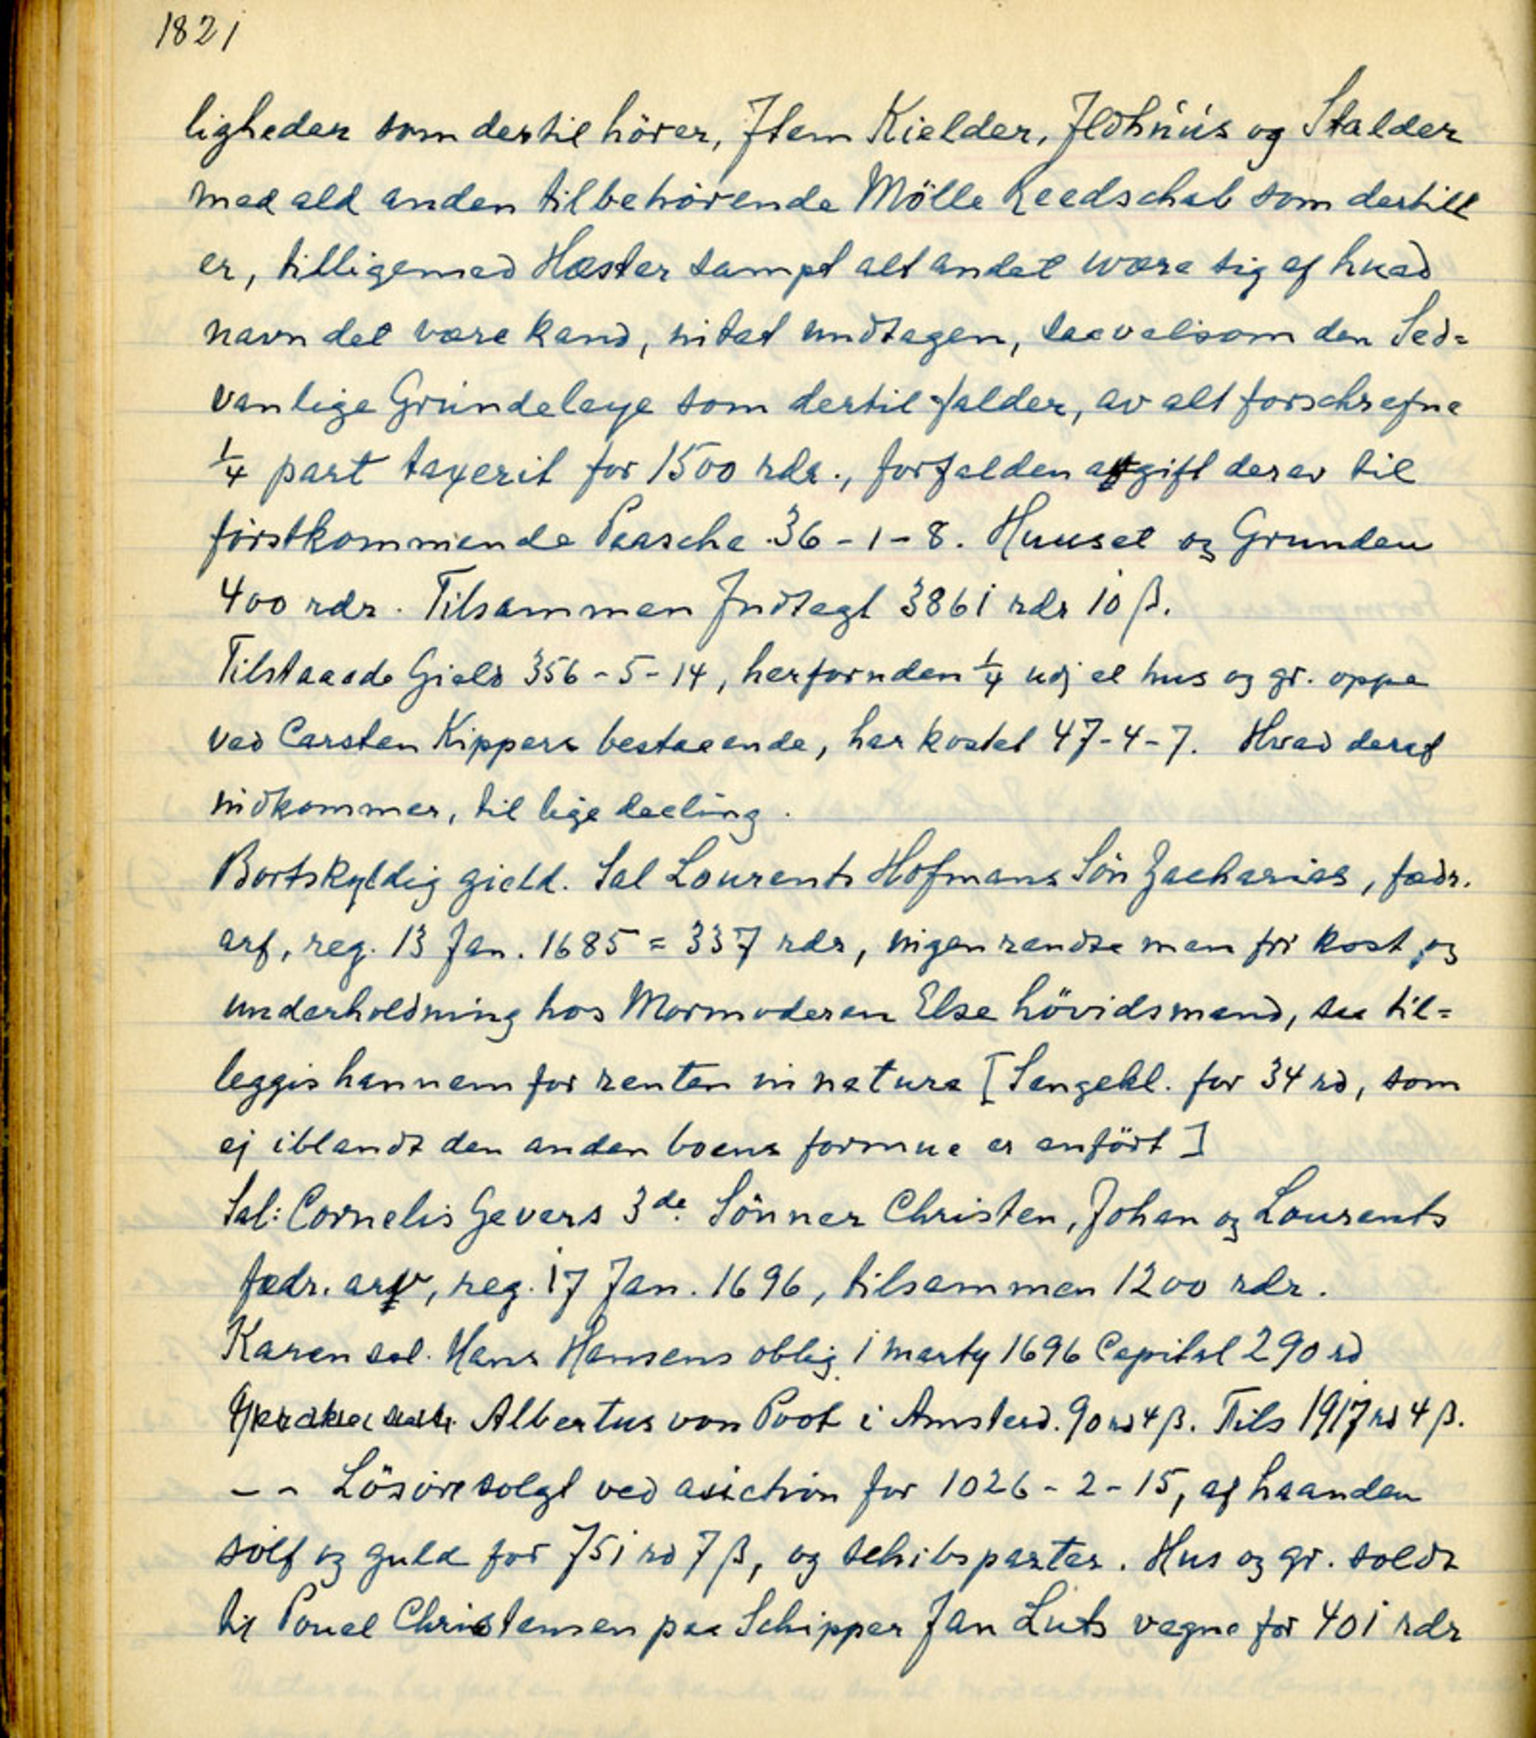 1821
ligheder som dertil hörer, Item Kielder, Ildhuus og Stalder
med ald anden tilbehörende Mölle Reedschab som dertill
er, tilligemed Hæster sampt alt andet være sig af huad
navn det være kand, intet undtagen, saavelsom den Sed=
vanlige Grundeleye som dertil falder, av alt forschrefne
1/4 part taxerit for 1500 rdr., forfalden afgift derav til
förstkommende Paasche 36-1-8. Huuset og Grunden
400 rdr. Tilsammen Indtægt 3861 rdr 10 ß.
Tilstaaede Gield 356-5-14, herforuden 1/4 udj et hus og gr. oppe
ved Carsten Kippers bestaaende, har kostet 47-4-7. Hvad deraf
indkommer, til lige deeling.
Bortskyldig gield. Sal Lourents Hofmans Sön Zacharias, fædr.
arf, reg. 13 Jan. 1685 = 337 rdr, ingen rendte men fri kost og
underholdning hos Mormoderen Else hövidsmand, saa til=
leggis hannem for renten in natura [Sengekl. for 34 rd, som
ej iblandt den anden boens formue er anfört]
Sal: Cornelis Gevers 3de. Sönner Christen, Johan og Lourents
fædr. arv, reg. 17 Jan. 1696, tilsammen 1200 rdr.
Karen sal. Hans Hansens oblig. 1 marty 1696 Capital 290 rd
Albertus von Poot i Amsterd. 90 rd 4 ß. Tils 1917 rd 4 ß.
-- Lösöre solgt ved auction for 1026-2-15, af haanden
sölf og guld for 751 rd 7 ß, og schibsparter. Hus og gr. soldt
til Pouel Christensen paa Schipper Jan Luts vegne for 401 rdr